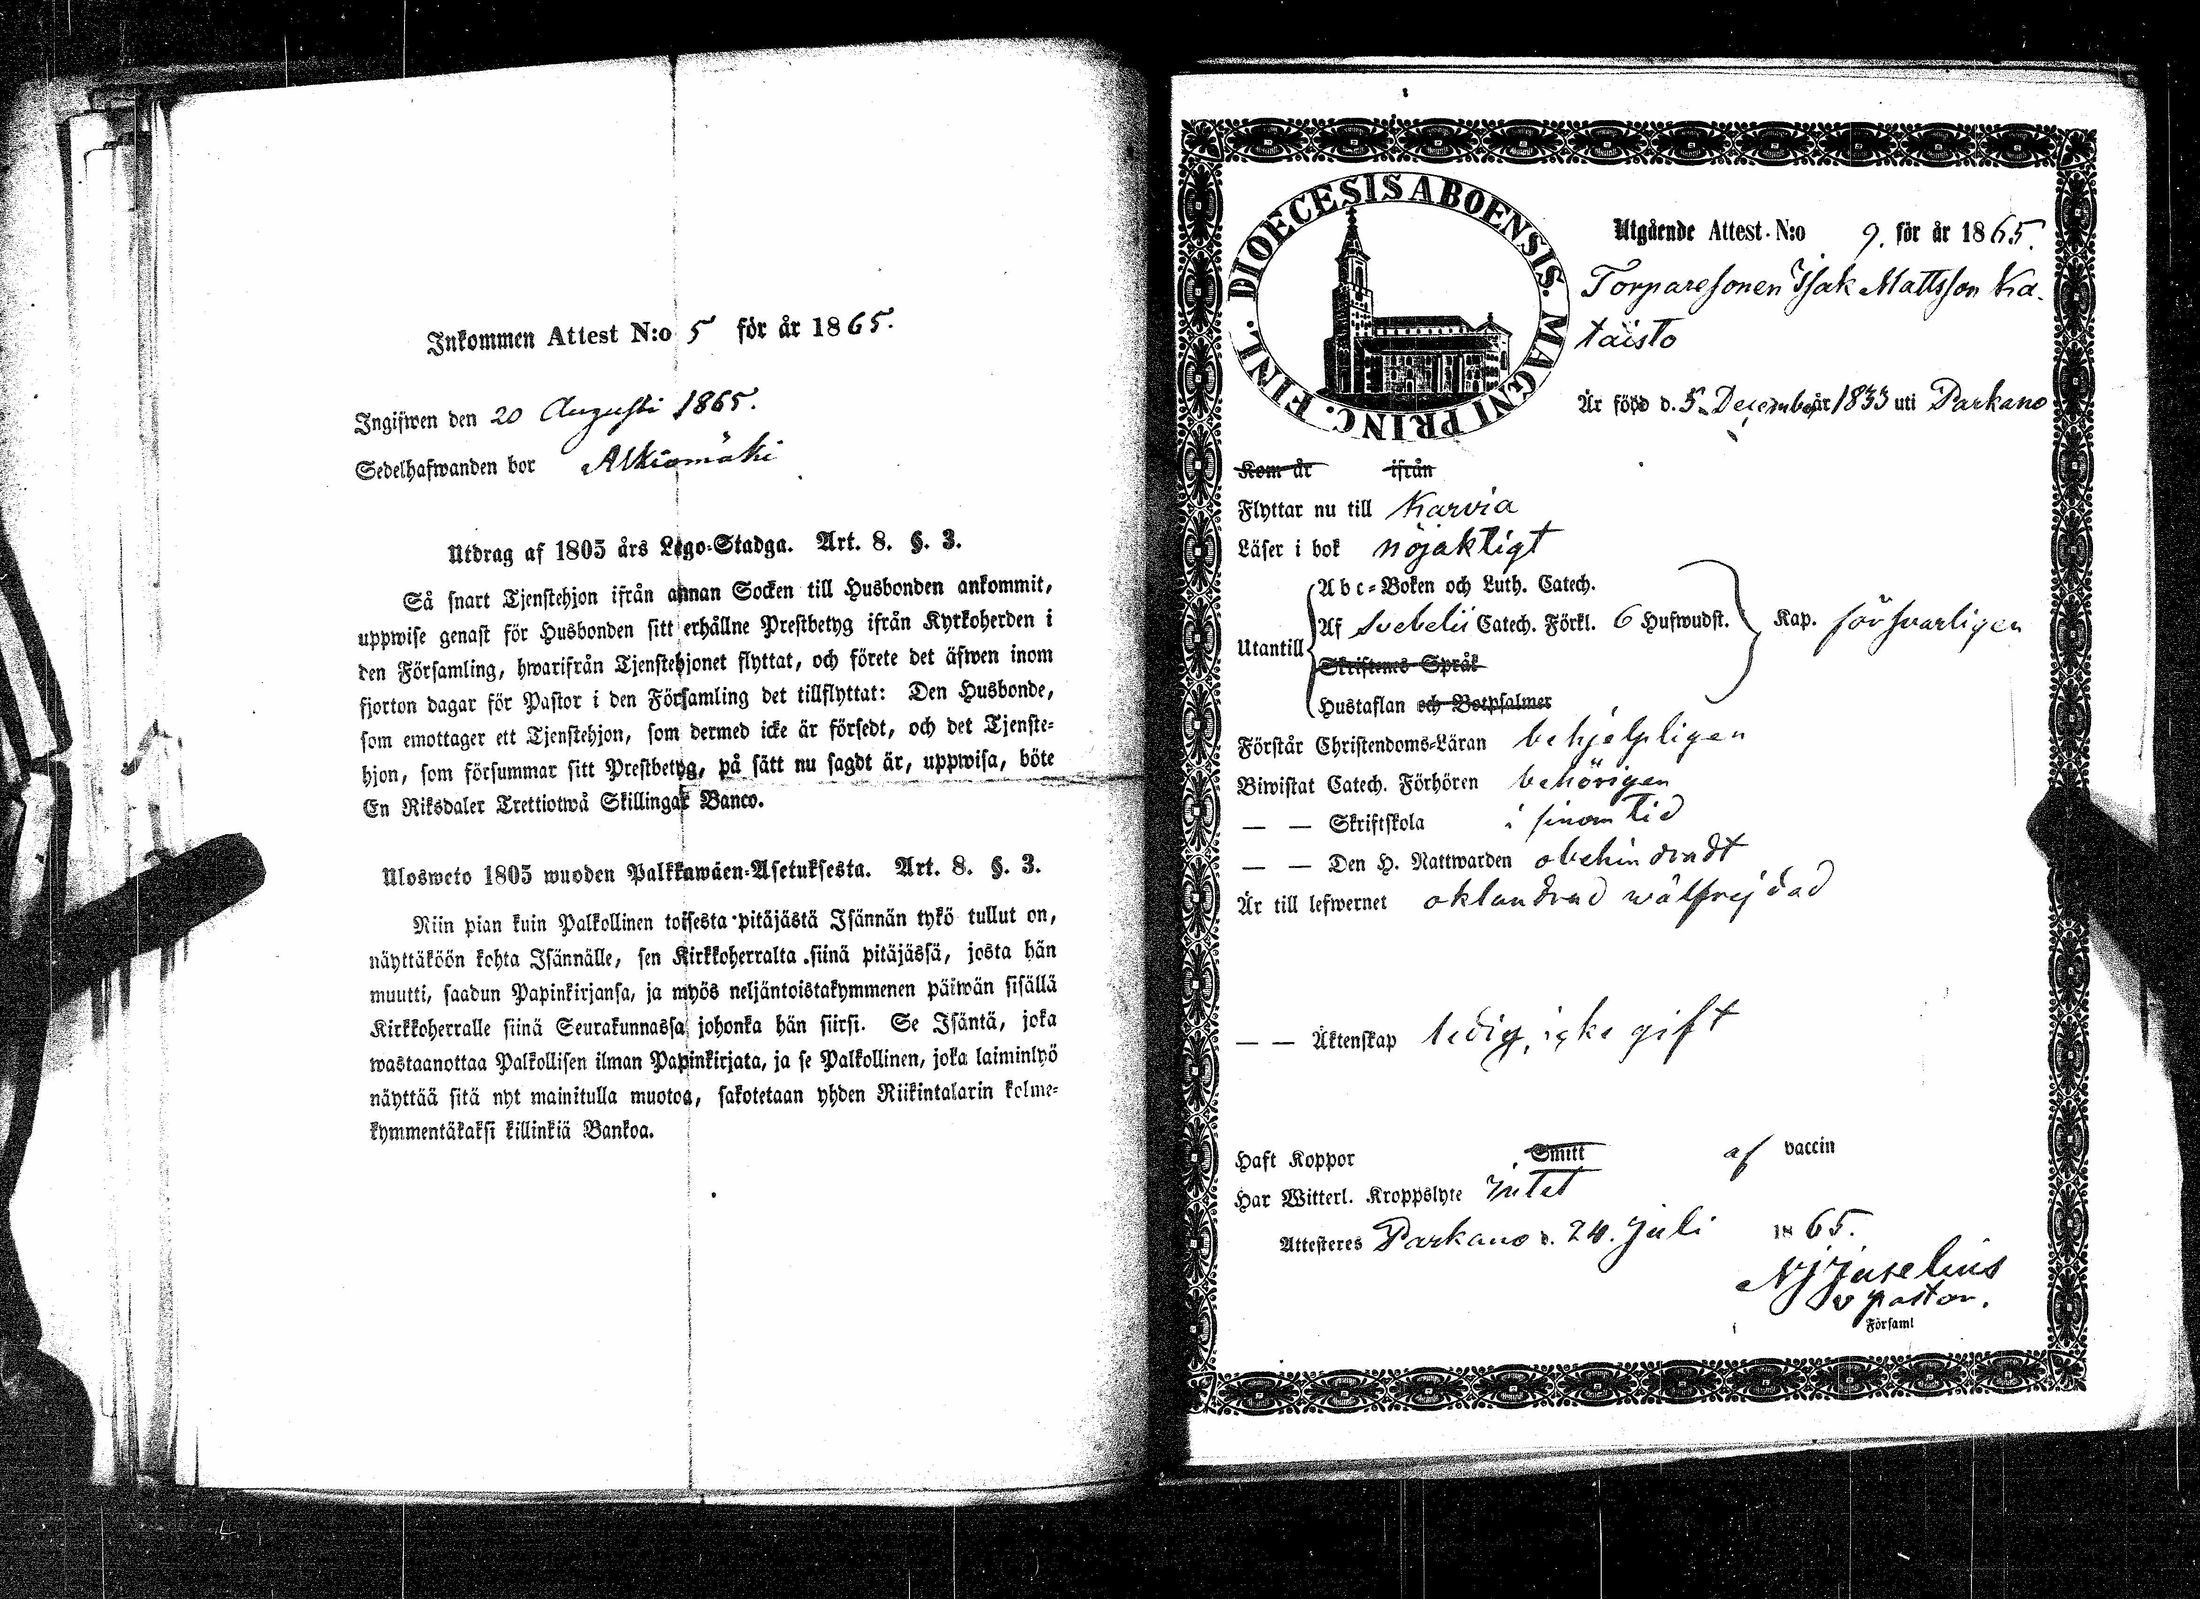 Inkommen Attest N:o 5 för år 1865.
Ingifwen den 20 Augusti 1865.
Sedelhafwanden bor Alkiomäki
Utdrag af 1805 års Lego-Stadga. Art. 8. §. 3.
Så snart Tjenstehjon ifrån annan Socken till Husbonden ankommit,
uppwise genast för Husbonden sitt erhållne Prestbetyg ifrån Kyrkoherden i
den Församling, hwarifrån Tjenstehjonet flyttat, och förete det äfwen inom
fjorton dagar för Pastor i den Församling det tillflyttat: Den Husbonde,
som emottager ett Tjenstehjon, som dermed icke är försedt, och det Tjenste-
hjon, som försummar sitt Prestbetyg, på sätt nu sagdt är, uppwisa, böte
En Riksdaler Trettiotwå Skillingar Banco.
Ulosweto 1805 wuoden Palkkawäen-Asetuksesta. Art. 8. §. 3.
Niin pian kuin Palkollinen toisesta pitäjästä Isännän tykö tullut on,
näyttäköön kohta Isännälle, sen Kirkkoherralta siinä pitäjässä, josta hän
muutti, saadun Papinkirjansa, ja myös neljäntoistakymmenen päiwän sisällä
Kirkkoherralle siinä Seurakunnassa johonka hän siirsi. Se Isäntä, joka
wastaanottaa Palkollisen ilman Papinkirjata, ja se Palkollinen, joka laiminlyö
näyttää sitä nyt mainitulla muotoa, sakotetaan yhden Riikintalarin kolme-
kymmentäkaksi killinkiä Bankoa.
DIOECESIS ABOENSIS. MAGNI PRINC. FINL.
Utgående Attest N:o 9. för år 1865.
Torparesonen Isak Mattsson Ka-
taisto
Är född d. 5 December år 1833 uti Parkano
Kom år ifrån
Flyttar nu till Karvia
Läser i bok nöjaktigt
Utantill
Abc-Boken och Luth. Catech.
Af Svebelii Catech. Förkl. 6 Hufwudst. Kap. försvarligen
Skriftenes Språk
Hustaflan och Botpsalmer
Förstår Christendoms-Läran behjelpligen
Biwistat Catech. Förhören behörigen
— — Skriftskola i sinom tid
— — Den H. Nattwarden obehindradt
Är till lefwernet oklandrad wälfrejdad
— — Äktenskap ledig, icke gift
Haft Koppor Smitt af vaccin
Har Witterl. Kroppslyte Intet
Attesteres Parkano d. 24. Juli 1865.
v pastor.
Församl